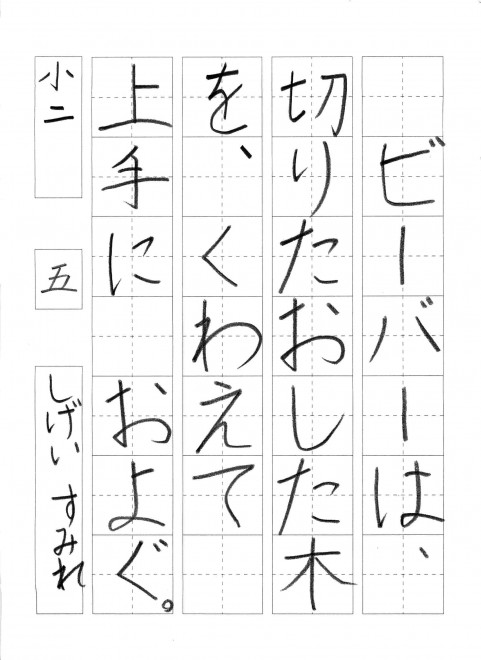 ビーバーは、
切りたおした木
を、くわえて
上手に　およぐ。
小二
五
しげい　すみれ